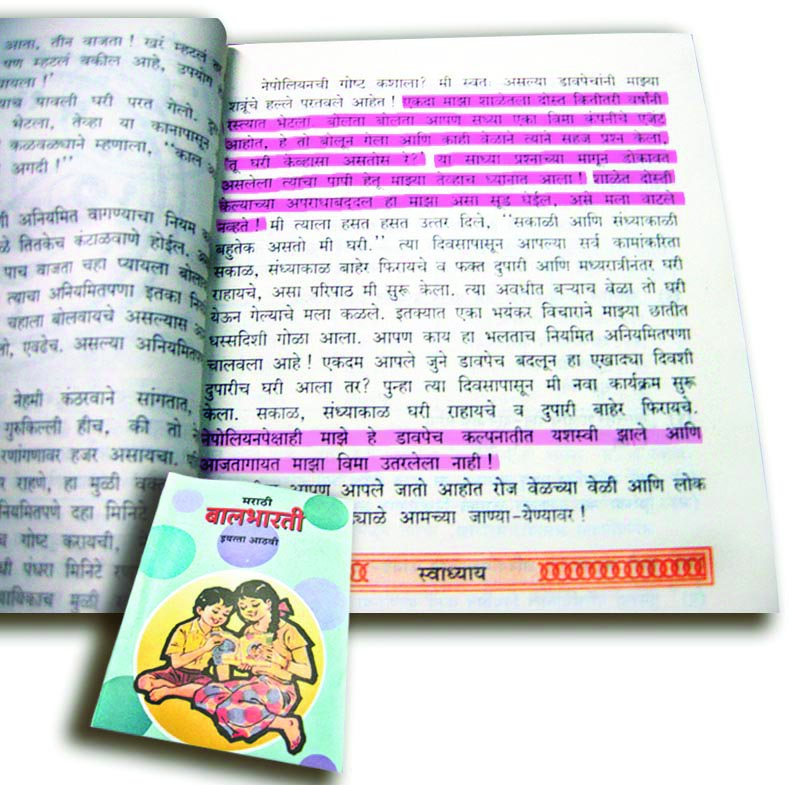 आला, तीन वाजता ! खरं म्हटलं तर
पण म्हटलं वकील आहे, उपयोग
पावली घरी परत गेलो.
भेटला, तेव्हा या कानापासून
कळवळ्याने म्हणाला, ‘‘काल
अगदी !’’
अनियमित वागण्याचा नियम
तितकेच कंटाळवाणे होईल,
पाच वाजता चहा प्यायला
त्याचा अनियमितपणा इतका
चहाला बोलवायचे असल्यास
एवढेच. असल्या अनियमितप
नेहमी कंठरवाने सांगतात,
गुरुकिल्ली हीच, की तो
रणांगणावर हजर असायचा.
राहणे, हा मुळी
दहा मिनिटे
गोष्ट करायची,
पंधरा मिनिटे
मुळी
नेपोलियनची गोष्ट कशाला? मी स्वतः असल्या डावपेचांनी माझ्या
शत्रूंचे हल्ले परतवले आहेत ! एकदा माझा शाळेतला दोस्त कितीतरी वर्षांनी
रस्त्यात भेटला. बोलता बोलता आपण सध्या एका विमा कंपनीचे एजंट
आहोत, हे तो बोलून गेला आणि काही वेळाने त्याने सहज प्रश्न केला,
‘तू घरी केव्हासा असतोस रे?’ या साध्या प्रश्नाच्या मागून डोकावत
असलेला त्याचा पापी हेतू माझ्या तेव्हाच ध्यानात आला ! शाळेत दोस्ती
केल्याच्या अपराधाबद्दल हा माझा असा सूड घेईल, असे मला वाटले
नव्हते ! मी त्याला हसत हसत उत्तर दिले, ‘‘सकाळी आणि संध्याकाळी
बहुतेक असतो मी घरी.’’ त्या दिवसापासून आपल्या सर्व कामांकरिता
सकाळ, संध्याकाळ बाहेर फिरायचे व फक्त दुपारी आणि मध्यरात्रीनंतर घरी
राहायचे, असा परिपाठ मी सुरू केला. त्या अवधीत बऱ्याच वेळा तो घरी
येऊन गेल्याचे मला कळले. इतक्यात एका भयंकर विचाराने माझ्या छातीत
धस्सदिशी गोळा आला. आपण काय हा भलताच नियमित अनियमितपणा
चालवला आहे ! एकदम आपले जुने डावपेच बदलून हा एखाद्या दिवशी
दुपारीच घरी आला तर? पुन्हा त्या दिवसापासून मी नवा कार्यक्रम सुरू
केला. सकाळ, संध्याकाळ घरी राहायचे व दुपारी बाहेर फिरायचे.
नेपोलियनपेक्षाही माझे हे डावपेच कल्पनातीत यशस्वी झाले आणि
आजतागायत माझा विमा उतरलेला नाही !
आपण आपले जातो आहोत रोज वेळच्या वेळी आणि लोक
आमच्या जाण्या-येण्यावर !
स्वाध्याय
मराठी
बालभारती
इयत्ता आठवी